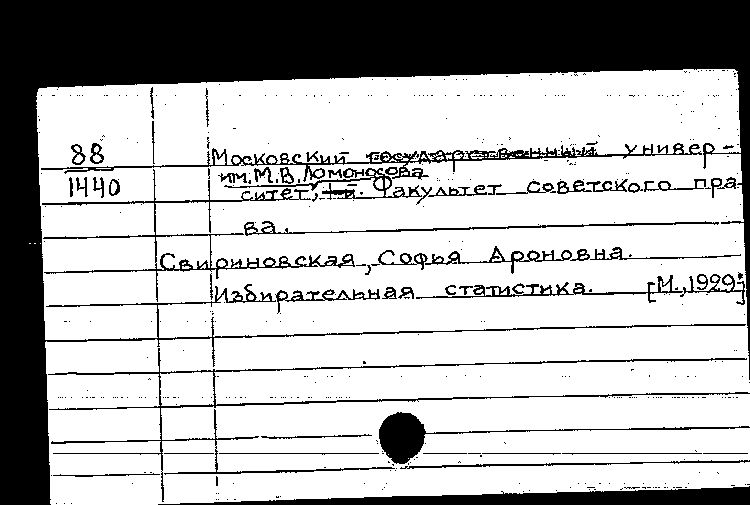 88
1440
Московский государственный универ-
им. М.В. Ломоносова
ситет, 1-й. Факультет советского пра-
ва.
Свириновская, Софья Ароновна.
Избирательная статистика. [М., 1929.]